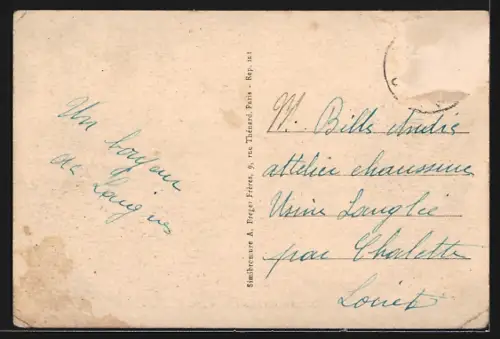 Un bonjour
de Laignes
Similibromure A. Breger Frères, 9, rue Thénard, Paris - Rep. int
M. Bille André
attelier chaussure
Usine Langlée
par Chalette
Loiret